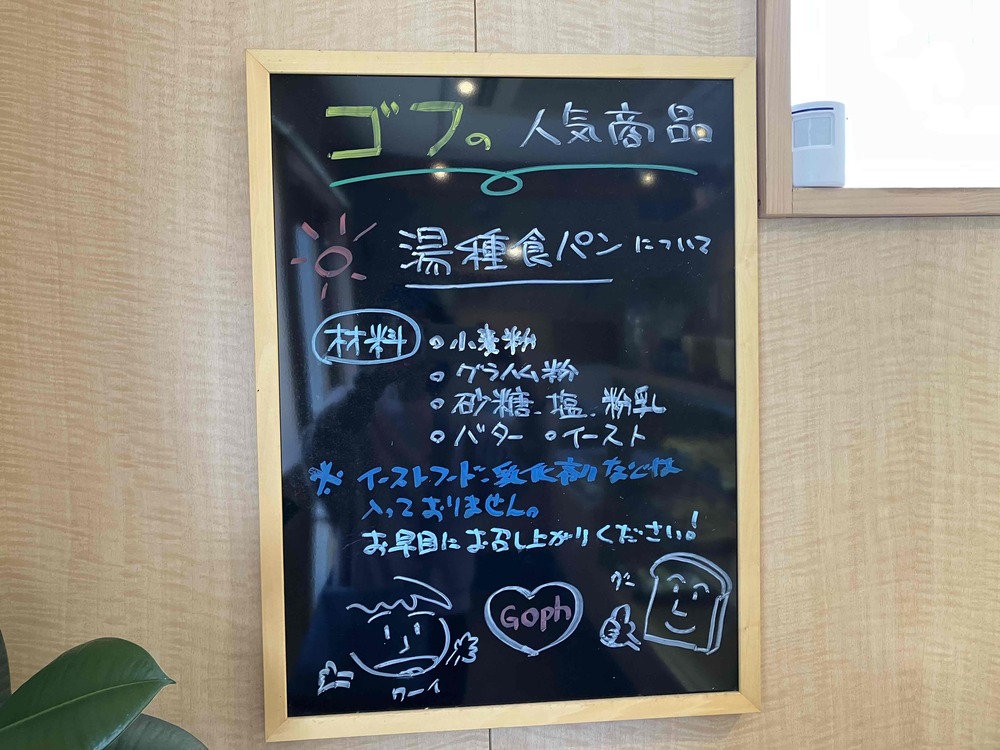 ゴフの 人気商品
湯種食パンについて
材料 ○小麦粉
○グラハム粉
○砂糖、塩、粉乳
○バター ○イースト
※イーストフード・乳化剤などは
入っておりません。
お早目にお召し上がりください!
グー
Goph
ワーイ